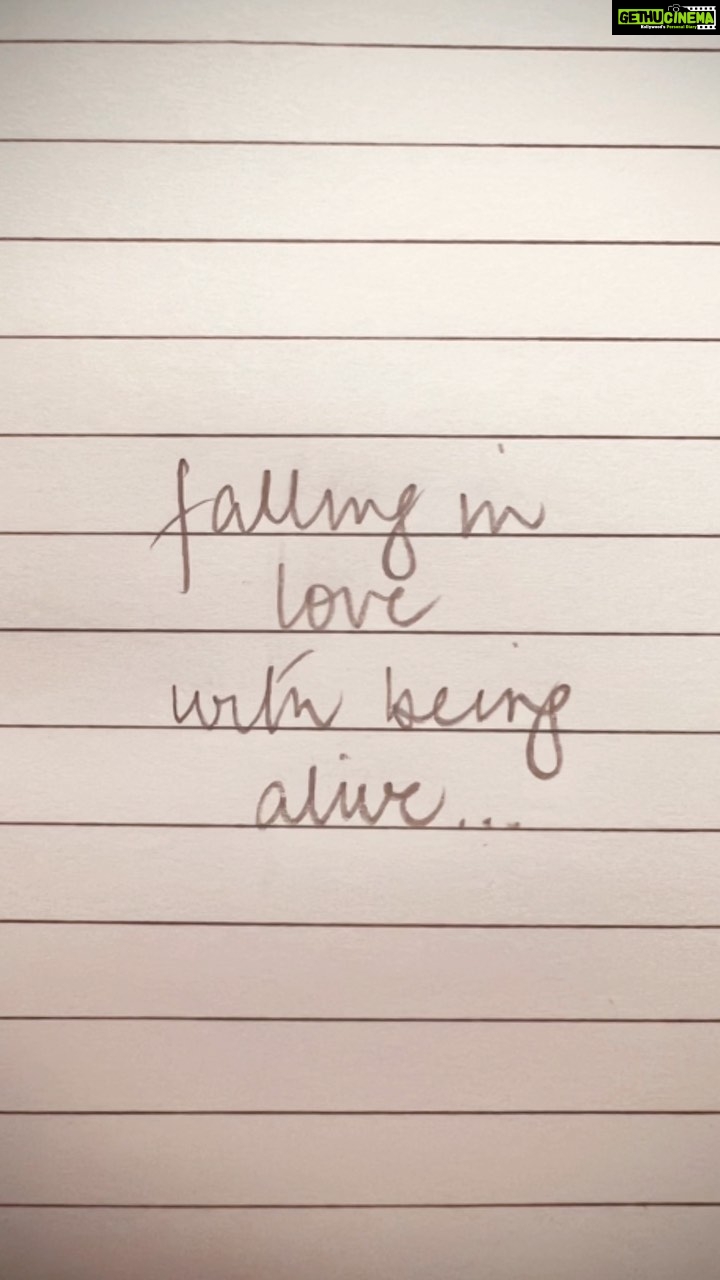 GETHUCINEMA
Kollywood's Personal Diary
falling in
love
with being
alive...